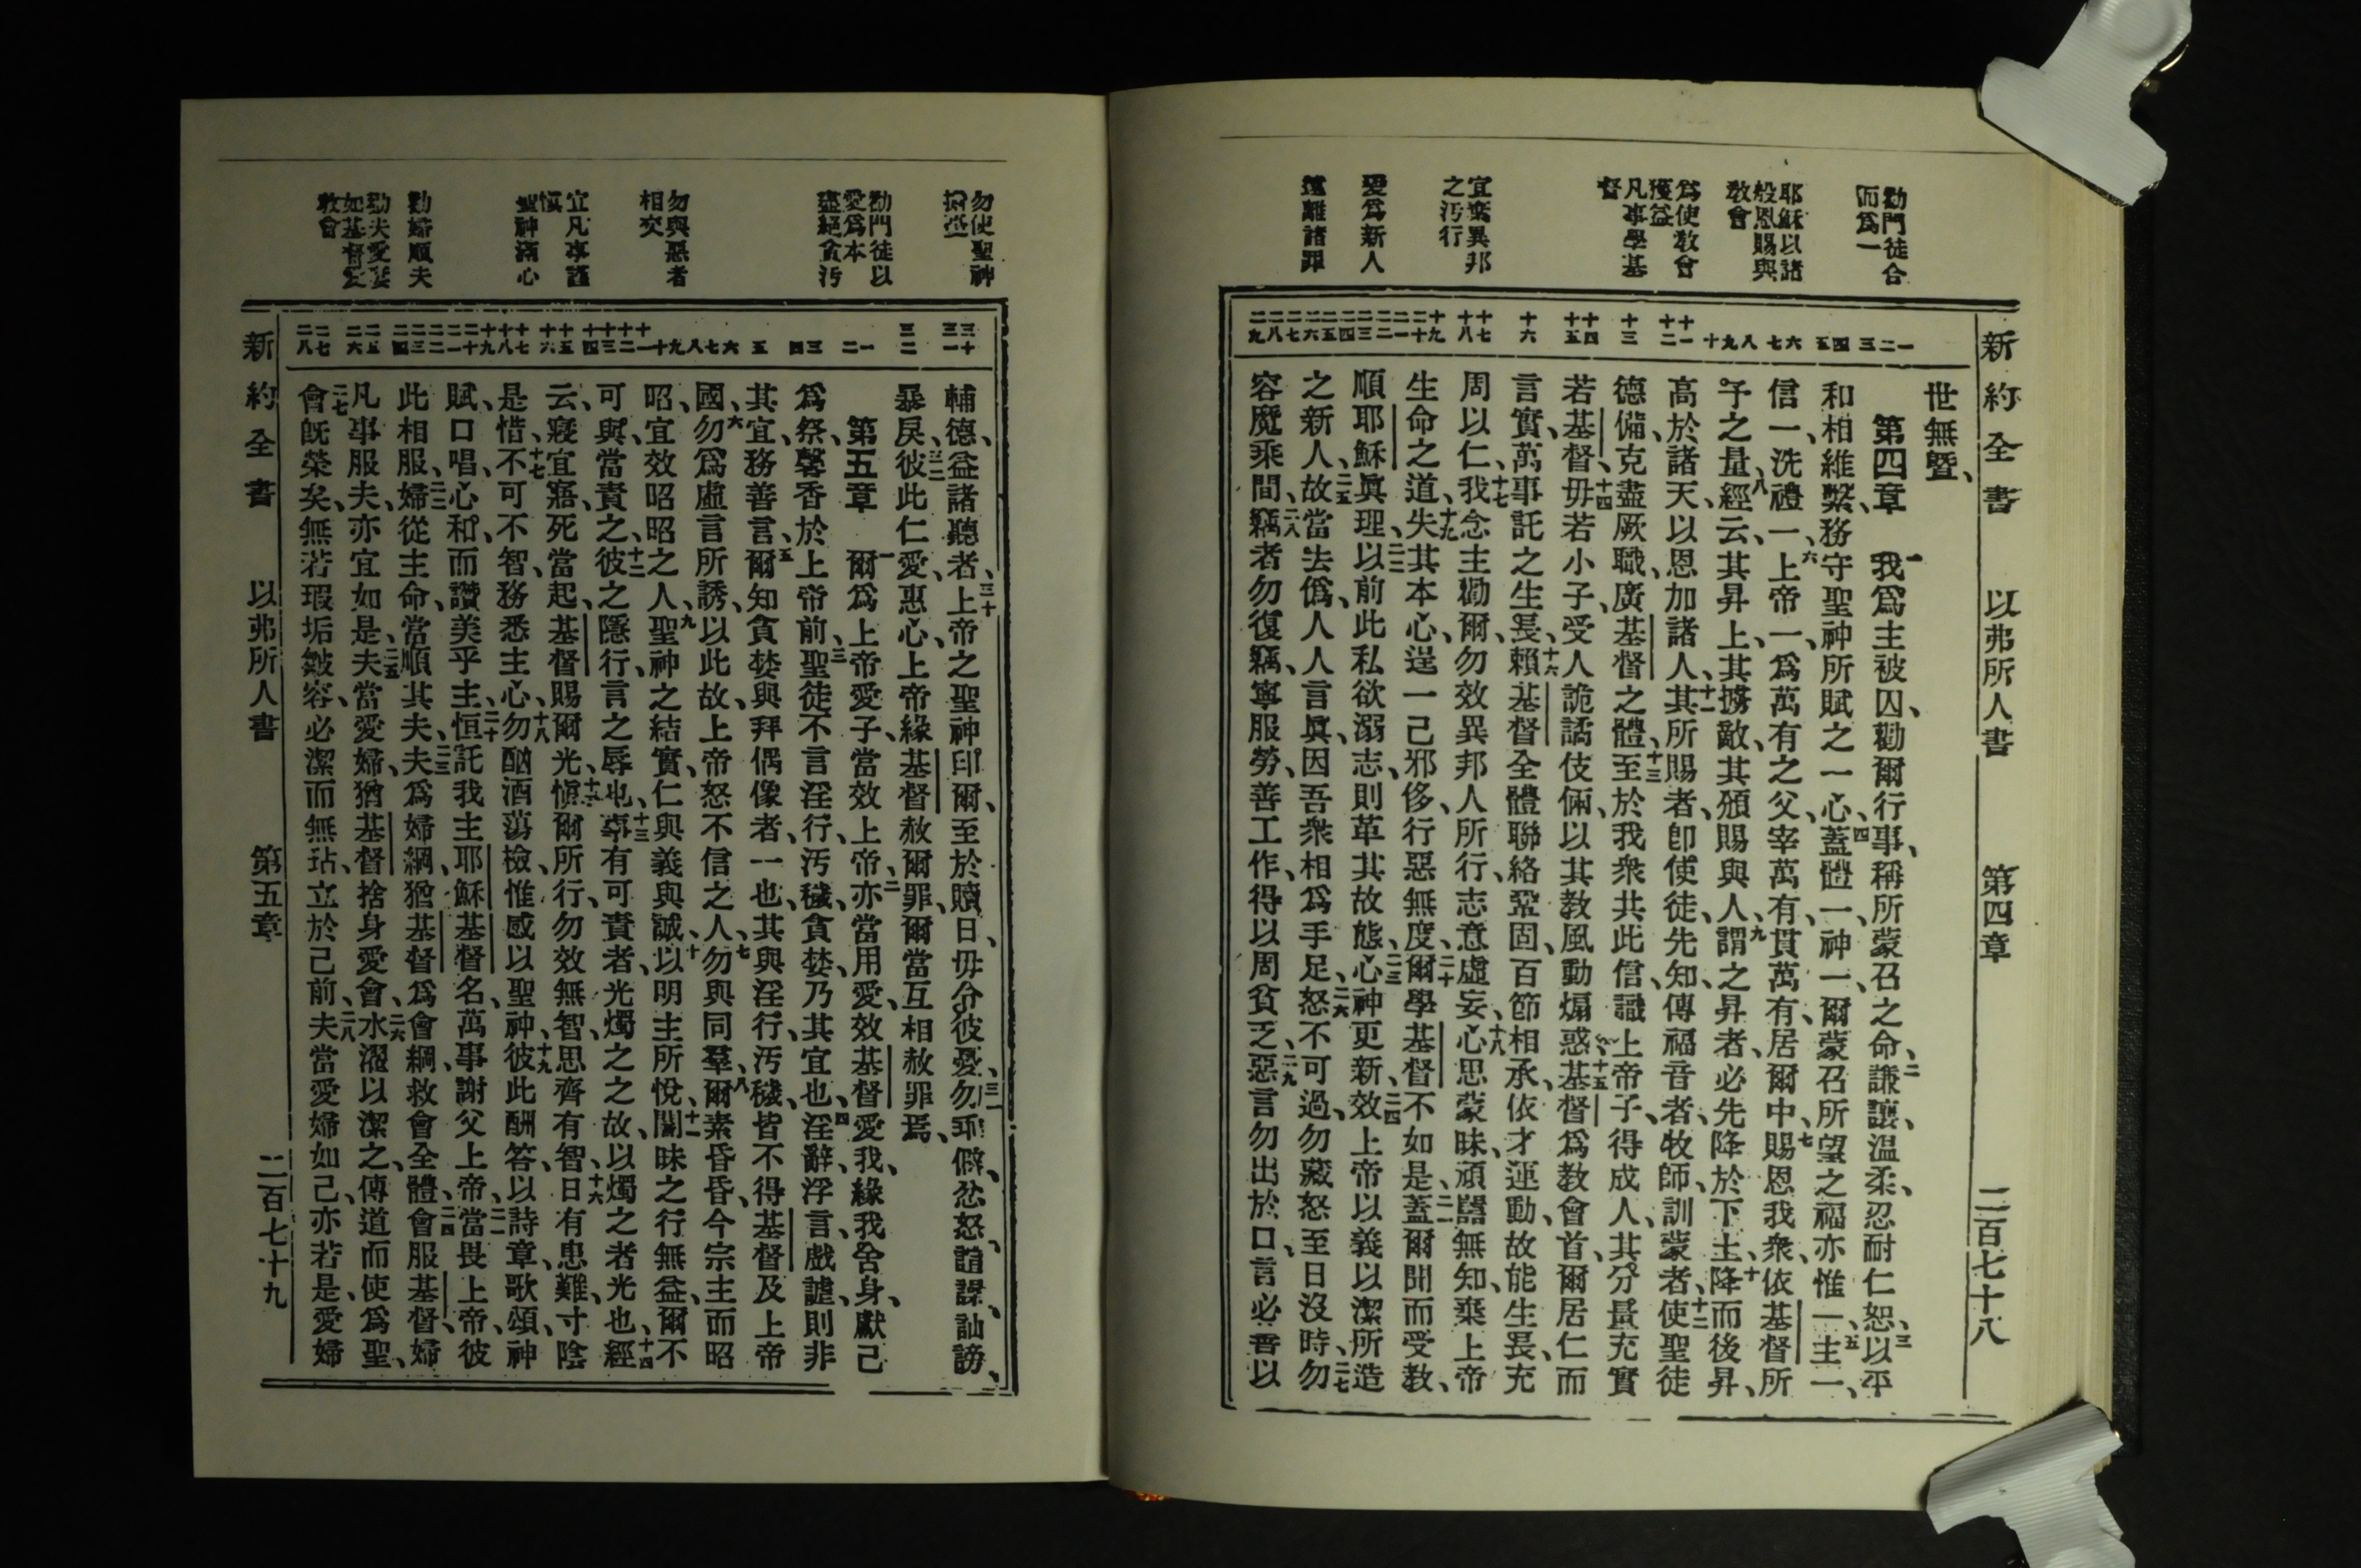 新約全書 以弗所人書 第四章 二百七十八
勸門徒合
而爲一
耶穌以諸
般恩賜與
教會
爲使教會
獲益
凡事學基
督
宜棄異邦
之汚行
愛爲新人
遠離諸罪
一 二 三 四 五 六 七 八 九 十 十一 十二 十三 十四 十五 十六 十七 十八 十九 二十 二一 二二 二三 二四 二五 二六 二七 二八 二九
世無暨、
第四章 一我爲主被囚、勸爾行事、稱所蒙召之命、二謙讓、温柔、忍耐仁恕、三以平
和相維繫、務守聖神所賦之一心、四蓋體一、神一、爾蒙召所望之福亦惟一、五主一、
信一、洗禮一、六上帝一、爲萬有之父、宰萬有、貫萬有、居爾中、七賜恩我衆、依基督所
予之量、八經云、其昇上、其擄敵、其頒賜與人、九謂之昇者、必先降於下土、十降而後昇、
高於諸天、以恩加諸人、十一其所賜者、卽使徒、先知、傳福音者、牧師、訓蒙者、十二使聖徒
德備、克盡厥職、廣基督之體、十三至於我衆共此信、識上帝子、得成人、其分量充實
若基督、十四毋若小子、受人詭譎伎倆、以其教風動煽惑、十五基督爲教會首、爾居仁而
言實、萬事託之生長、十六賴基督全體聯絡鞏固、百節相承、依才運動、故能生長、充
周以仁、十七我念主勸爾、勿效異邦人所行、志意虛妄、十八心思蒙昧、頑嚚無知、棄上帝
生命之道、十九失其本心、逞一己邪侈、行惡無度、二十爾學基督不如是、二一蓋爾聞而受教、
順耶穌眞理、二二以前此私欲溺志、則革其故態、二三心神更新、二四效上帝以義以潔所造
之新人、二五故當去僞、人人言眞、因吾衆相爲手足、二六怒不可過、勿藏怒至日沒時、二七勿
容魔乘間、二八竊者勿復竊、寧服勞、善工作、得以周貧乏、二九惡言勿出於口、言必善以
勿使聖神
勸門徒以
愛爲本
盡絕貪汚
勿與惡者
相交
宜凡事謹
慎
聖神滿心
勸婦順夫
勸夫愛妻
如基督愛
教會
三十 三一 三二 一 二 三 四 五 六 七 八 九 十 十一 十二 十三 十四 十五 十六 十七 十八 十九 二十 二一 二二 二三 二四 二五 二六 二七 二八
輔德、益諸聽者、三十上帝之聖神印爾、至於贖日、毋分彼憂、三一勿乖僻、忿怒、諠譟、訕謗、
暴戾、三二彼此仁愛、惠心、上帝緣基督赦爾罪、爾當互相赦罪焉、
第五章 一爾爲上帝愛子、當效上帝、二亦當用愛、效基督愛我、緣我舍身、獻己
爲祭、馨香於上帝前、三聖徒不言淫行、汚穢、貪婪、乃其宜也、四淫辭、浮言、戲謔、則非
其宜、務善言、五爾知貪婪與拜偶像者、一也、其與淫行、汚穢、皆不得基督及上帝
國、六勿爲虛言所誘、以此故、上帝怒不信之人、七勿與同羣、八爾素昏昏、今宗主而昭
昭、宜效昭昭之人、九聖神之結實、仁與義與誠、十以明主所悅、十一闇昧之行無益、爾不
可與、當責之、十二彼之隱行、言之辱也、十三事有可責者、光燭之、之故、以燭之者光也、十四經
云、寢宜寤、死當起、基督賜爾光、十五愼爾所行、勿效無智、思齊有智、十六日有患難、寸陰
是惜、十七不可不智、務悉主心、十八勿酗酒蕩檢、惟感以聖神、十九彼此酬答、以詩章、歌頌、神
賦、口唱、心和、而讚美乎主、二十恒託我主耶穌基督名、萬事謝父上帝、二一當畏上帝、彼
此相服、二二婦從主命、當順其夫、二三夫爲婦綱、猶基督爲會綱、救會全體、二四會服基督、婦
凡事服夫、亦宜如是、二五夫當愛婦、猶基督捨身愛會、二六水濯以潔之、傳道而使爲聖、
二七會旣榮矣、無若瑕垢皺容、必潔而無玷、立於己前、二八夫當愛婦如己、亦若是、愛婦
新約全書 以弗所人書 第五章 二百七十九